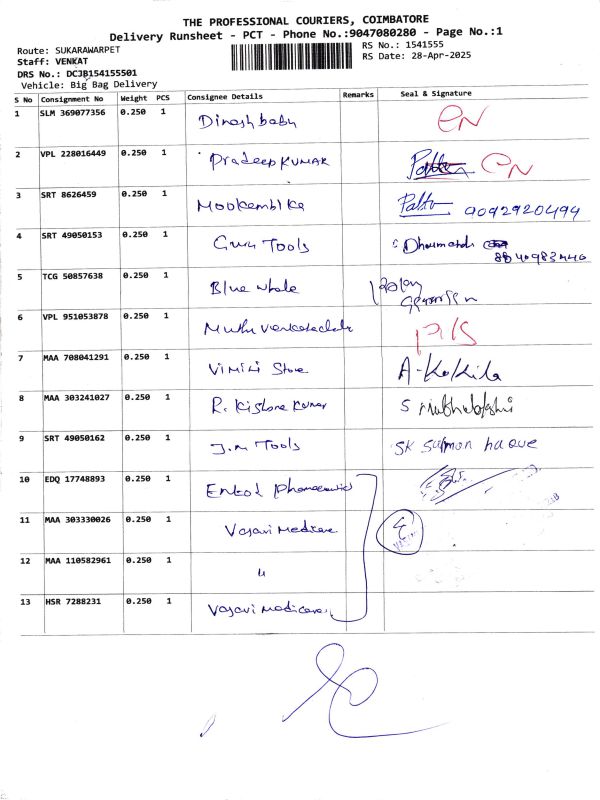 THE PROFESSIONAL COURIERS, COIMBATORE
Delivery Runsheet - PCT - Phone No.:9047080280 - Page No.:1
Route: SUKARAWARPET
RS No.: 1541555
Staff: VENKAT
RS Date: 28-Apr-2025
DRS No.: DC3B154155501
Vehicle: Big Bag Delivery
S No Consignment No Weight PCS Consignee Details Remarks Seal & Signature
1 SLM 369077356 0.250 1 Dinesh babu
2 VPL 228016449 0.250 1 Pradeep KUMAR
3 SRT 8626459 0.250 1 Mookambika 9092920499
4 SRT 49050153 0.250 1 Guru Tools
5 TCG 50857638 0.250 1 Blue whale
6 VPL 951053878 0.250 1 Muthu
7 MAA 708041291 0.250 1 Vimini Store A-Kokila
8 MAA 303241027 0.250 1 R. Kishore Kumar
9 SRT 49050162 0.250 1 J.M Tools SK Salmon haque
10 EDQ 17748893 0.250 1
11 MAA 303330026 0.250 1 Vasavi Medicare
12 MAA 110582961 0.250 1 "
13 HSR 7288231 0.250 1 Vasavi Medicare